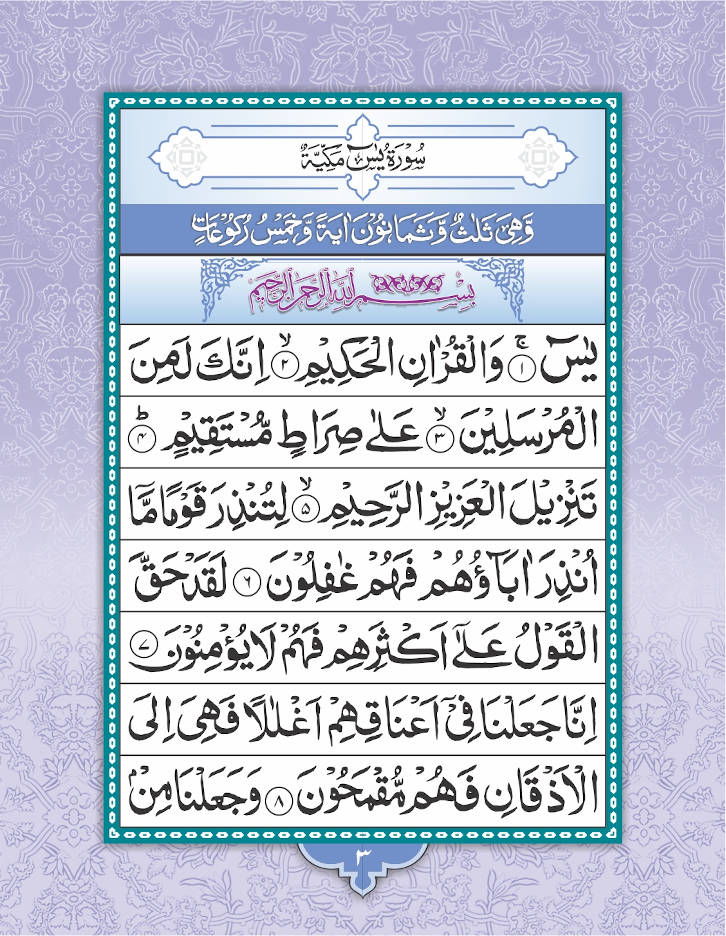 سُوْرَةُ يٰسٓ مَكِّيَّةٌ
وَّهِىَ ثَلٰثٌ وَّثَمَانُوْنَ اٰيَةً وَّخَمْسُ رُكُوْعَاتٍ
بِسْمِ اللّٰهِ الرَّحْمٰنِ الرَّحِيْمِ
يٰسٓ ۚ ﴿۱﴾ وَالْقُرْاٰنِ الْحَكِيْمِ ۙ ﴿۲﴾ اِنَّكَ لَمِنَ
الْمُرْسَلِيْنَ ۙ ﴿۳﴾ عَلٰى صِرَاطٍ مُّسْتَقِيْمٍ ؕ ﴿۴﴾
تَنْزِيْلَ الْعَزِيْزِ الرَّحِيْمِ ۙ ﴿۵﴾ لِتُنْذِرَ قَوْمًا مَّاۤ
اُنْذِرَ اٰبَآؤُهُمْ فَهُمْ غٰفِلُوْنَ ﴿۶﴾ لَقَدْ حَقَّ
الْقَوْلُ عَلٰٓى اَكْثَرِهِمْ فَهُمْ لَا يُؤْمِنُوْنَ ﴿۷﴾
اِنَّا جَعَلْنَا فِىْۤ اَعْنَاقِهِمْ اَغْلٰلًا فَهِىَ اِلَى
الْاَذْقَانِ فَهُمْ مُّقْمَحُوْنَ ﴿۸﴾ وَجَعَلْنَا مِنْۢ
۳